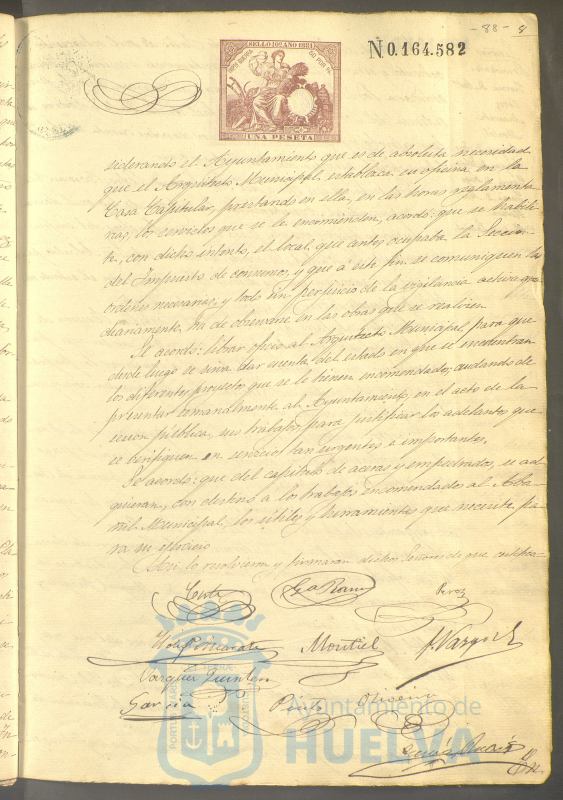 - 88 - 8
SELLO 10º AÑO 1881
UNA PESETA
N0.164.582
siderando el Ayuntamiento que es de absoluta necesidad
que el Arquitecto Municipal, establezca su oficina en la
Casa Capitular, prestando en ella, en las horas reglamenta-
rias, los servicios que se le encomienden, acordó: que se habili-
te, con dicho intento, el local, que antes ocupaba la Sección
del Impuesto de consumos, y que á este fin se comuniquen las
ordenes necesarias, y todo sin perjuicio de la vigilancia activa que
diariamente, ha de observarse en las obras que se realicen
Se acordó: librar oficio al Arquitecto Municipal para que
desde luego se sirva dar cuenta del estado en que se encuentran
los diferentes proyectos que se le tienen encomendados, cuidando de
presentar semanalmente al Ayuntamiento, en el acto de la
sesion pública, sus trabajos, para justificar los adelantos que
se verifiquen en servicios tan urgentes e importantes.
Se acordó: que del capitulo de aceras y empedrados, se ad-
quieran, con destino a los trabajos encomendados al Alba-
ñil Municipal, los útiles y herramientas que necesite pa-
ra su ejercicio
Asi lo resolvieron y firmaran dichos Señores de que certifico-
Perez
Montiel F. Vargas
Vazquez Quintero
Garcia Oliveira
Ayuntamiento de
HUELVA